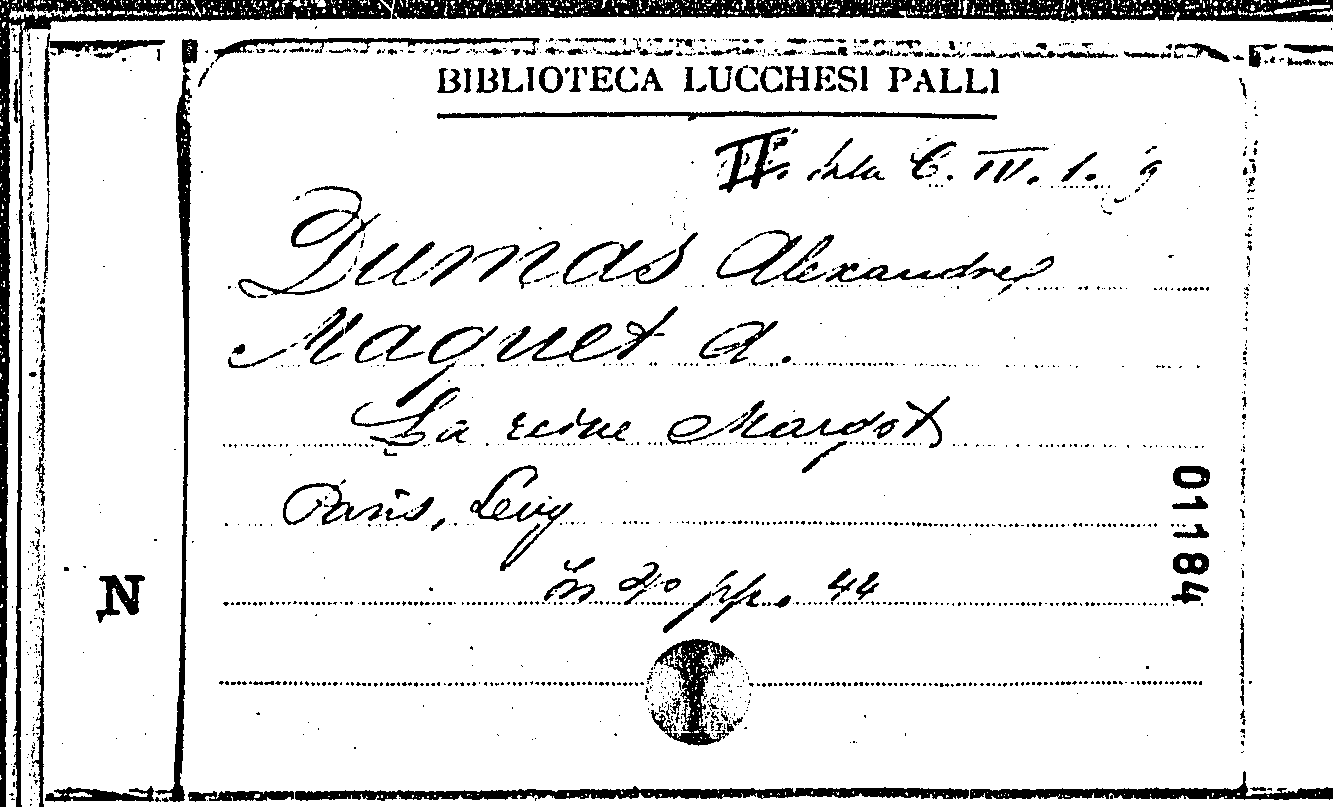 BIBLIOTECA LUCCHESI PALLI
II. sala C. IV. 1. 9
Dumas Alexandre
Maquet A.
La reine Margot
Paris, Levy
In 4º pp. 44
01184
N